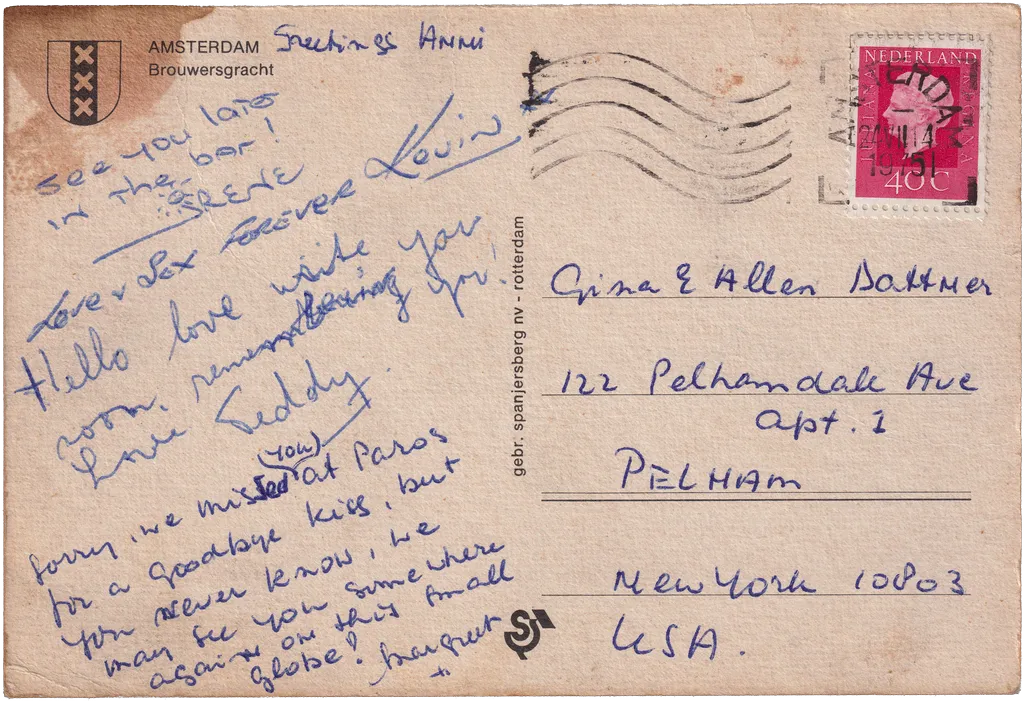 AMSTERDAM
Brouwersgracht
Greetings ANNi
See you later
in the bar!
IRENE
Love + Sex FOREVER Kevin x
Hello love write you
soon, remembering you!
Love Teddy.
Sorry, we missed (you) at Paros
for a goodbye kiss, but
you never know, we
may see you somewhere
again on this small
globe! Margreet
x
gebr. spanjersberg nv - rotterdam
NEDERLAND
40C
AMSTERDAM
24.VII.14
1975
Gina & Allen Dattner
122 Pelhamdale Ave
Apt. 1
PELHAM
New York 10803
USA.